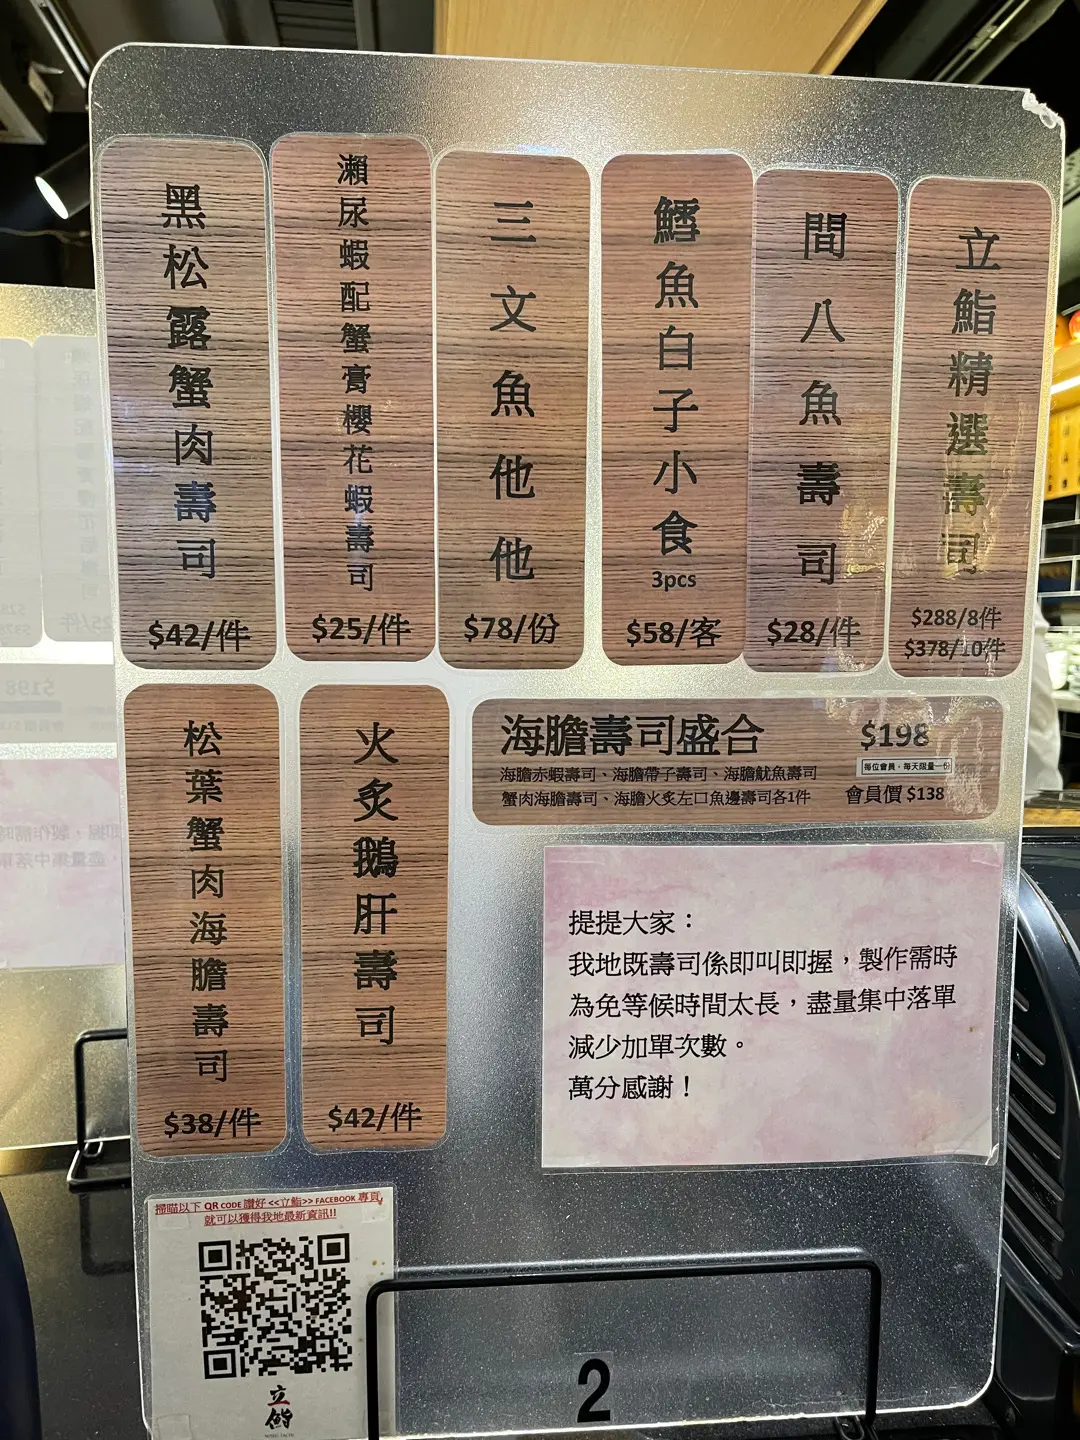 黑松露蟹肉壽司
$42/件
瀨尿蝦配蟹膏櫻花蝦壽司
$25/件
三文魚他他
$78/份
鱈魚白子小食
3pcs
$58/客
間八魚壽司
$28/件
立鮨精選壽司
$288/8件
$378/10件
松葉蟹肉海膽壽司
$38/件
火炙鵝肝壽司
$42/件
海膽壽司盛合
$198
海膽赤蝦壽司、海膽帶子壽司、海膽魷魚壽司
每位會員，每天限量一份
蟹肉海膽壽司、海膽火炙左口魚邊壽司各1件
會員價 $138
提提大家：
我地既壽司係即叫即握，製作需時
為免等候時間太長，盡量集中落單
減少加單次數。
萬分感謝！
掃瞄以下 QR CODE 讚好 <<立鮨>> FACEBOOK 專頁,
就可以獲得我地最新資訊!!
立鮨
2